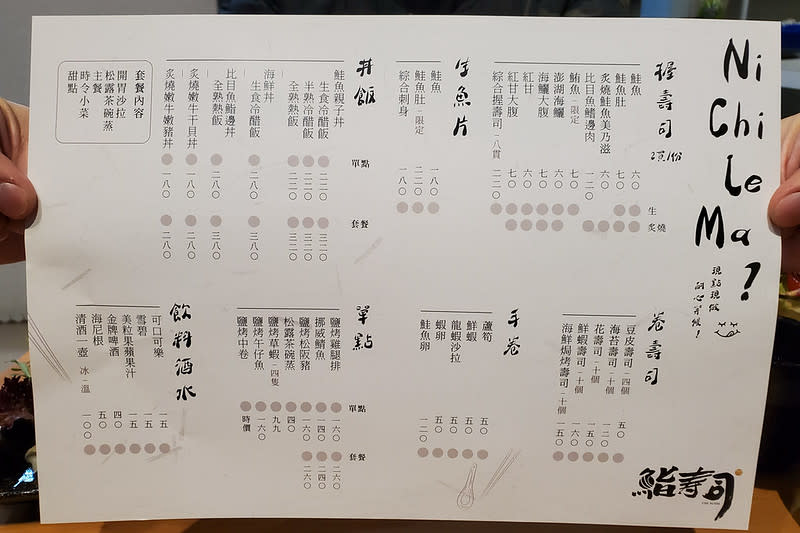 Ni
Chi
Le
Ma?
現點現做
耐心等候！
握壽司 2貫/份
生
炙燒
鮭魚 六〇
鮭魚肚 七〇
炙燒鮭魚美乃滋 六〇
比目魚鰭邊肉 一二〇
鮪魚－限定
澎湖海鱺 六〇
海鱺大腹 七〇
紅甘 六〇
紅甘大腹 七〇
綜合握壽司－八貫 二二〇
生魚片
鮭魚 一八〇
鮭魚肚－限定 二二〇
綜合刺身 一八〇
丼飯
單點
套餐
鮭魚親子丼
生食冷醋飯 二二〇 三二〇
半熟冷醋飯 二二〇 三二〇
全熟熱飯 二二〇 三二〇
海鮮丼
生食冷醋飯 二八〇 三八〇
比目魚鰭邊丼
全熟熱飯 二八〇 三八〇
炙燒嫩牛干貝丼 一八〇 二八〇
炙燒嫩牛嫩豬丼 一八〇 二八〇
套餐內容
開胃沙拉
松露茶碗蒸
主餐
時令小菜
甜點
卷壽司
豆皮壽司－四個 五〇
海苔壽司－十個 一二〇
花壽司－十個
鮮蝦壽司－十個
海鮮焗烤壽司－十個 一五〇
手卷
蘆筍 五〇
鮮蝦 五〇
龍蝦沙拉 五〇
蝦卵 五〇
鮭魚卵 一二〇
單點
單點
套餐
鹽烤雞腿排 一六〇 二六〇
挪威鯖魚 一四〇 二四〇
鹽烤松阪豬 一六〇 二六〇
松露茶碗蒸 四〇
鹽烤草蝦－四隻 九九
鹽烤午仔魚 一六〇
鹽烤中卷 時價
飲料酒水
可口可樂 一五
雪碧 一五
美粒果蘋果汁 一五
金牌啤酒 四〇
海尼根 五〇
清酒一壺 冰－溫 一〇〇
鮨壽司